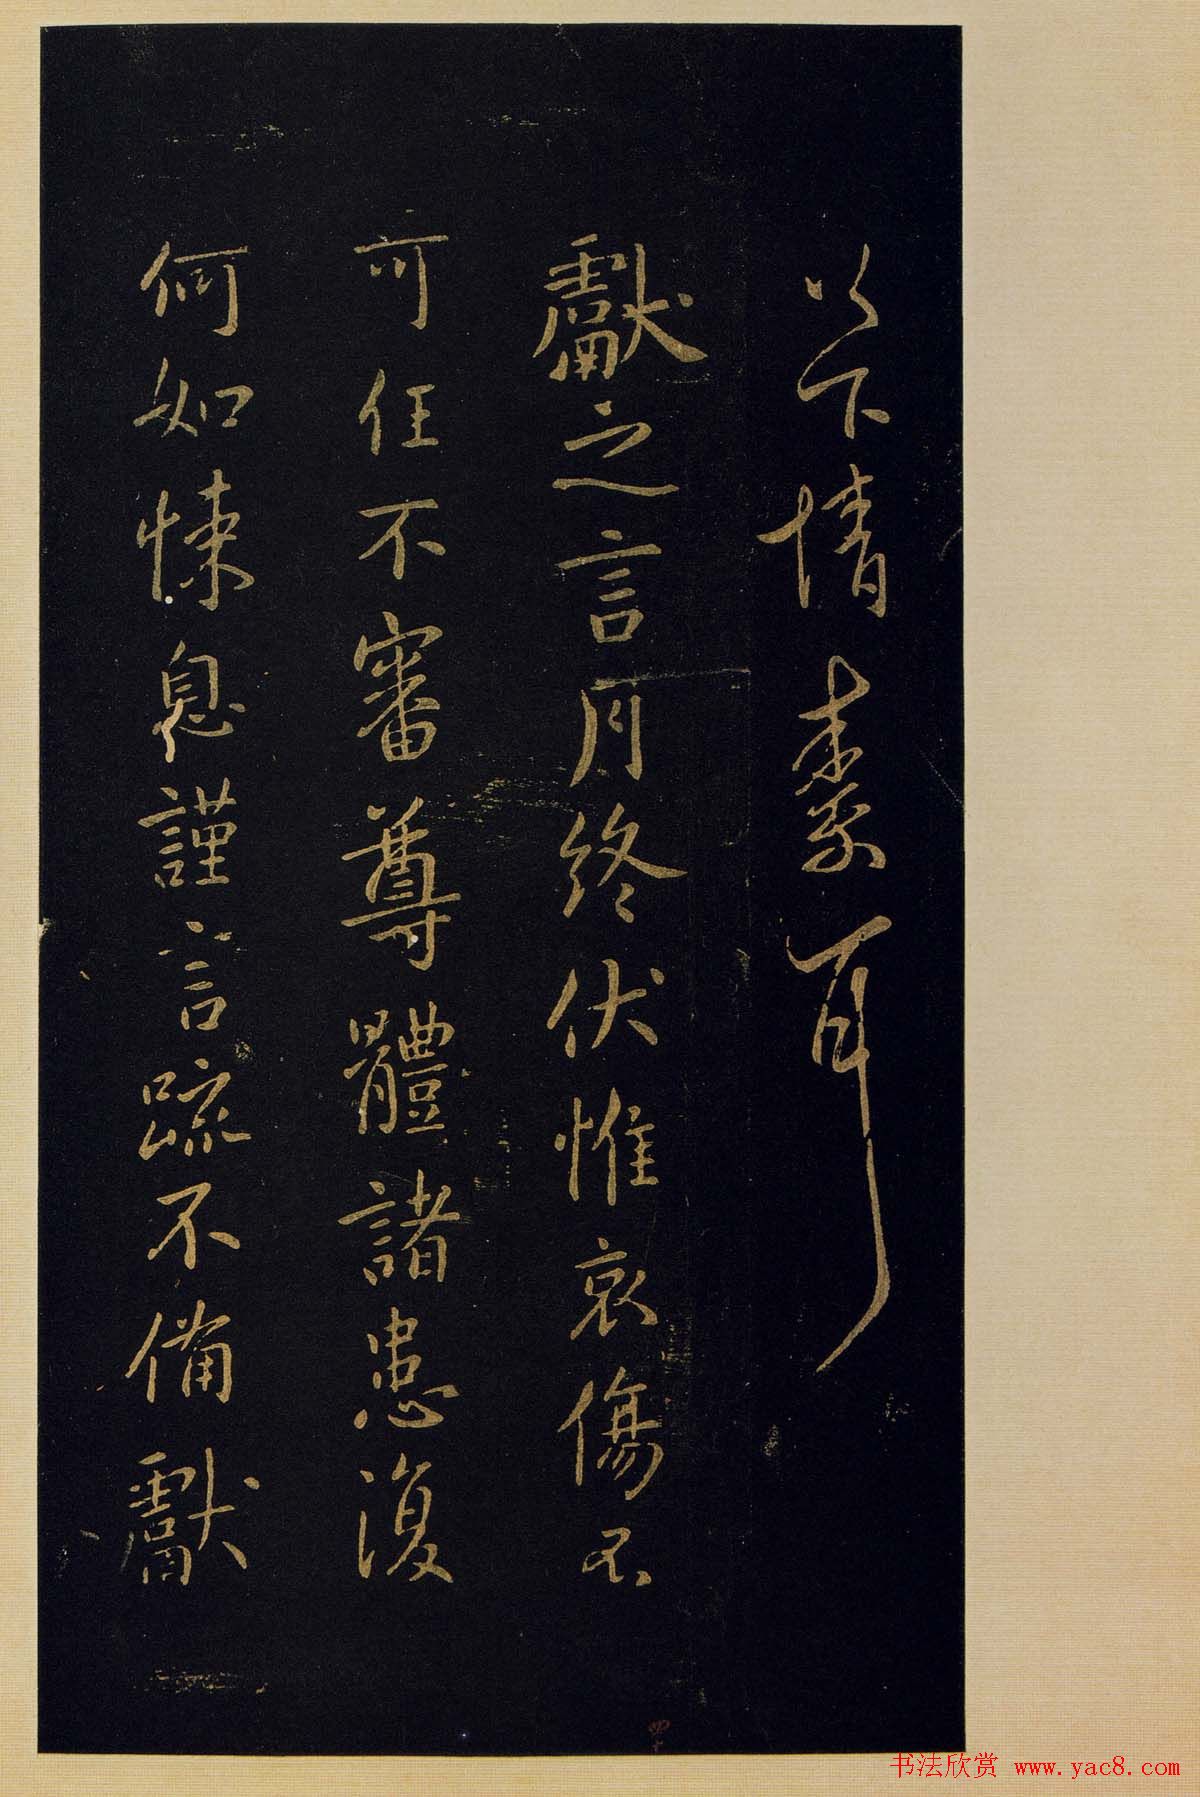 以下情素耳
獻之言月終伏惟哀傷不
可任不審尊體諸患復
何如悚息謹言疏不備獻
书法欣赏 www.yac8.com